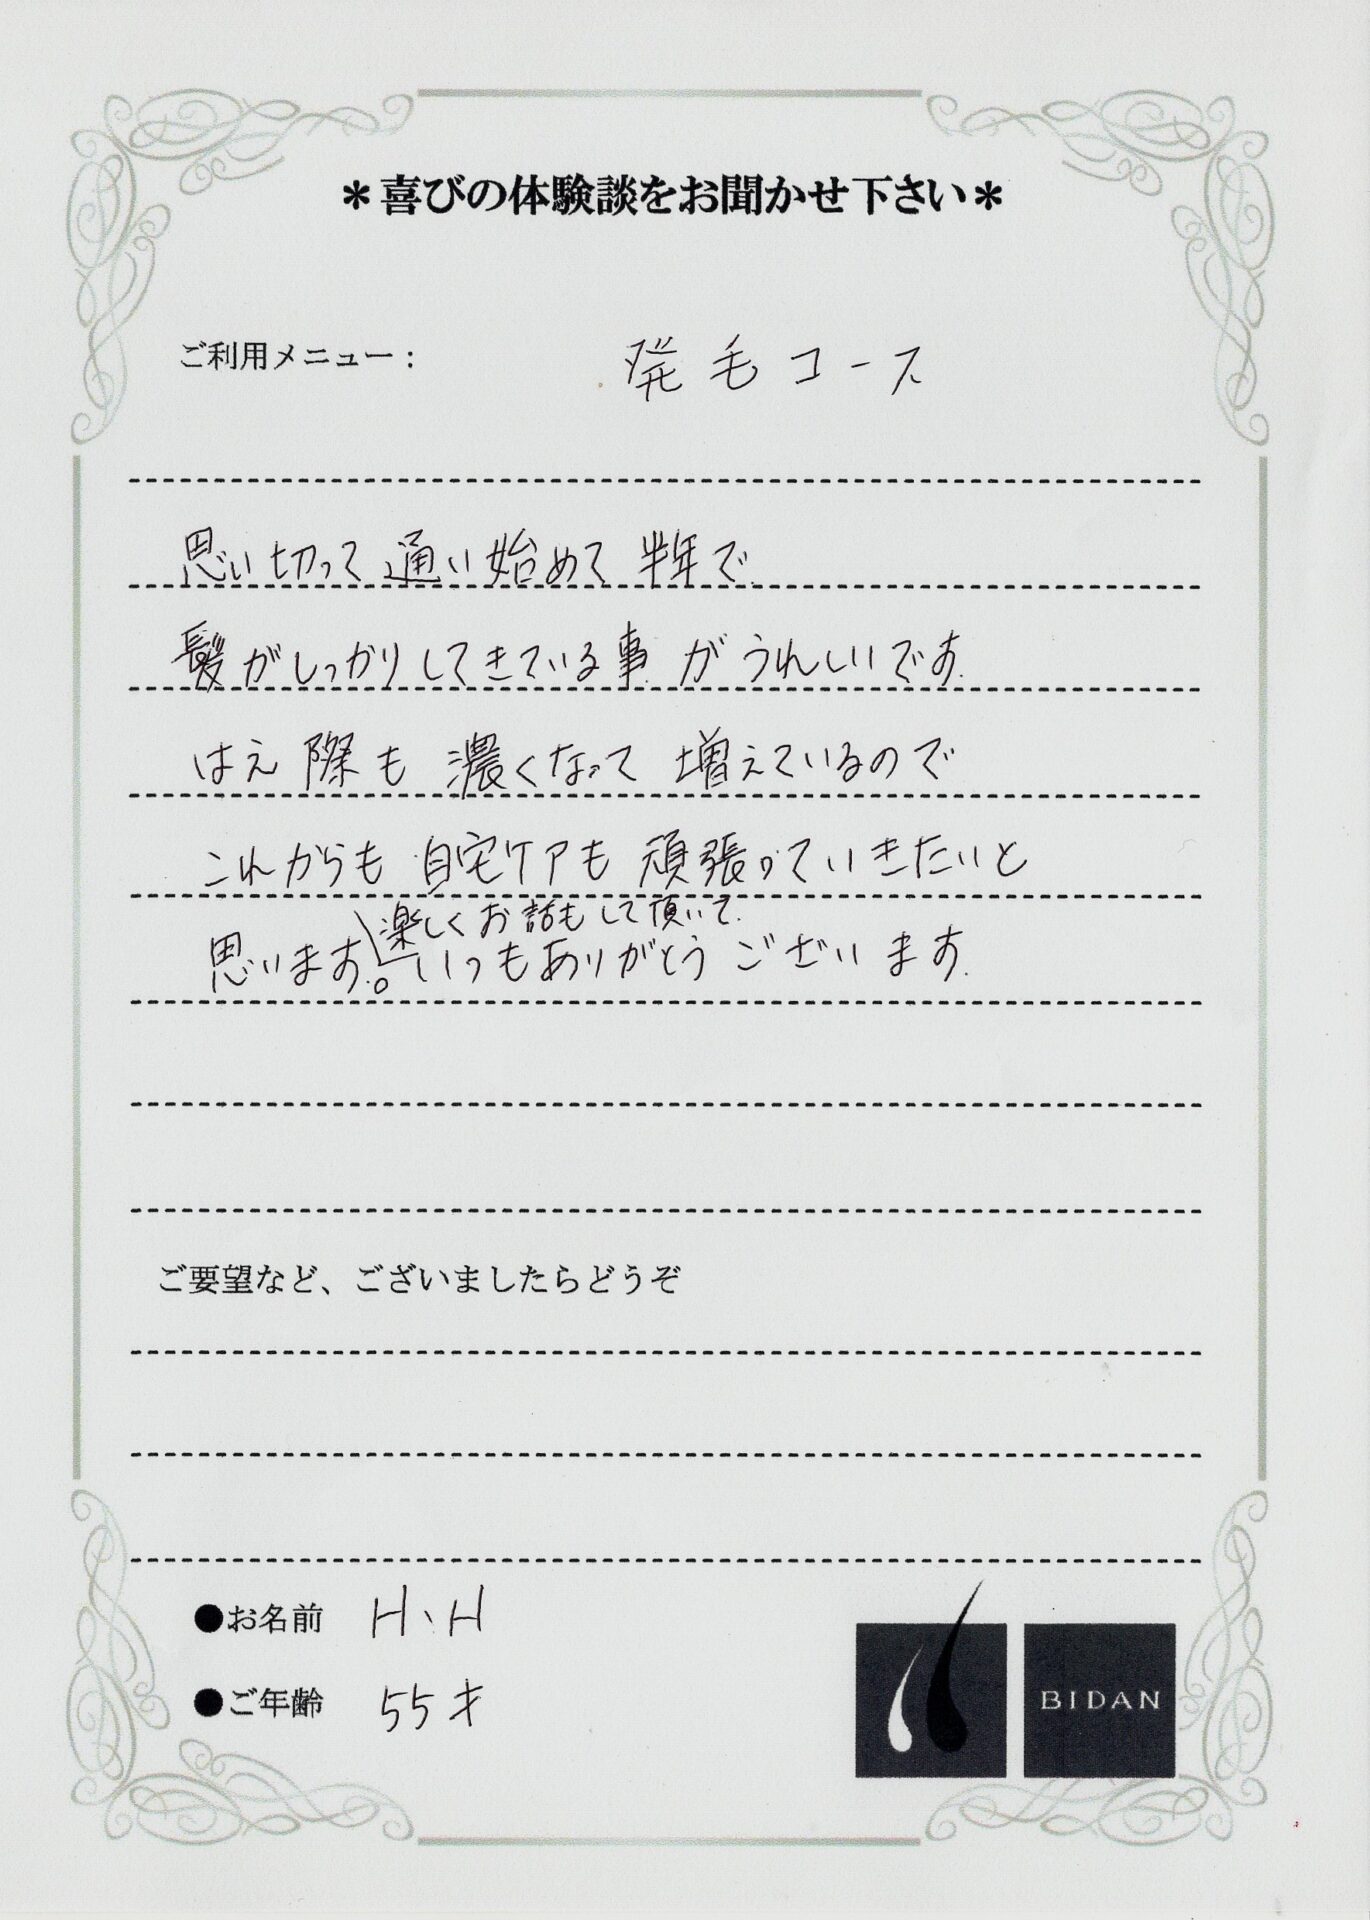 ＊喜びの体験談をお聞かせ下さい＊
ご利用メニュー： 発毛コース
思い切って通い始めて半年で
髪がしっかりしてきている事がうれしいです.
はえ際も濃くなって増えているので
これからも自宅ケアも頑張っていきたいと
楽しくお話もして頂いて.
思います。いつもありがとうございます.
ご要望など、ございましたらどうぞ
●お名前 H、H
●ご年齢 55才
BIDAN